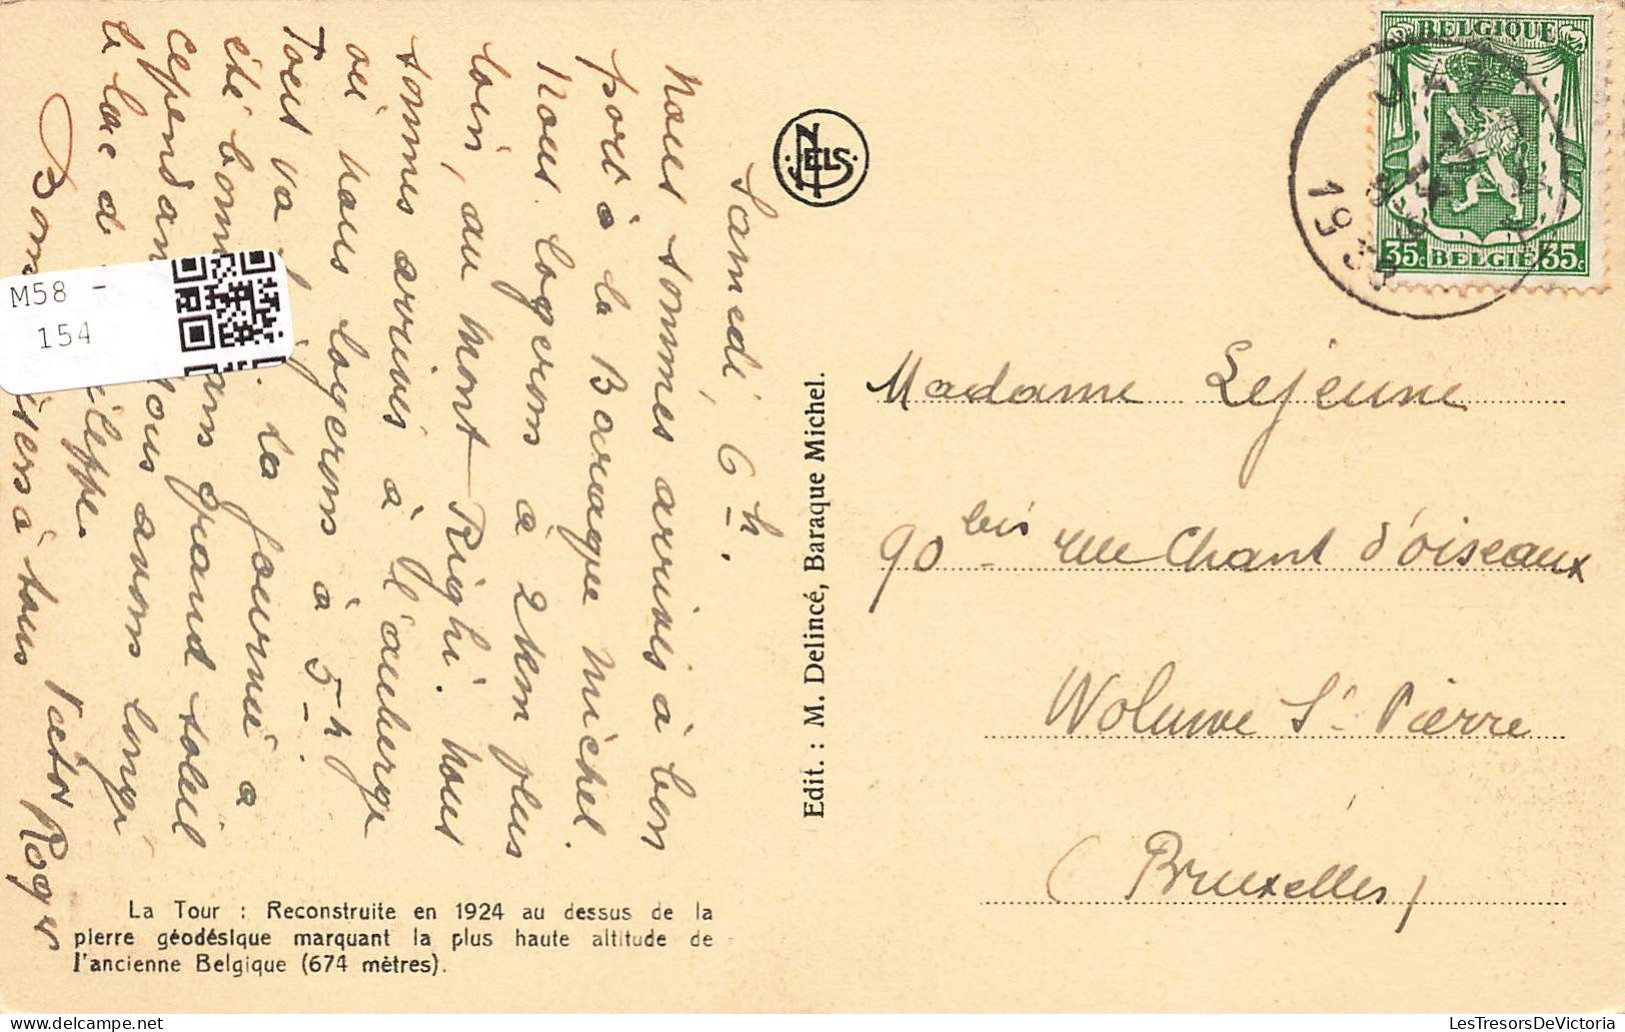 Samedi, 6h.
Nous sommes arrivés à bon
port à la Baraque Michel
Nous logerons à 2 km plus
loin, au Mont-Righi. Nous
sommes arrivés à l'auberge
où nous logerons à 5h.
Tout va
la journée a
été
grand soleil
cependant nous avons longé
le lac d
ileppe.
Bons
isers à tous Victor Roger
M58 -
154
La Tour : Reconstruite en 1924 au dessus de la
pierre géodésique marquant la plus haute altitude de
l'ancienne Belgique (674 mètres).
NELS
Edit. : M. Delincé, Baraque Michel.
BELGIQUE
35c BELGIË 35c
JAL
Madame Lejeune
90 bis rue Chant d'oiseaux
Woluwe St Pierre
(Bruxelles)
LesTresorsDeVictoria